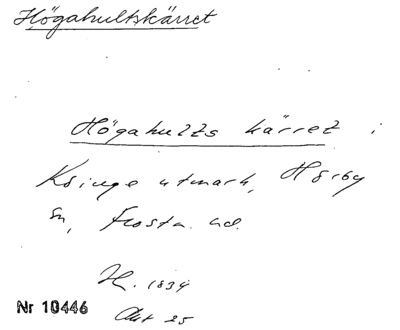 Högahultskärret
Högahults kärret i
Ksinge utmark, Hörby
sn, Frosta hd.
H. 1834
Akt 25
Nr 10446